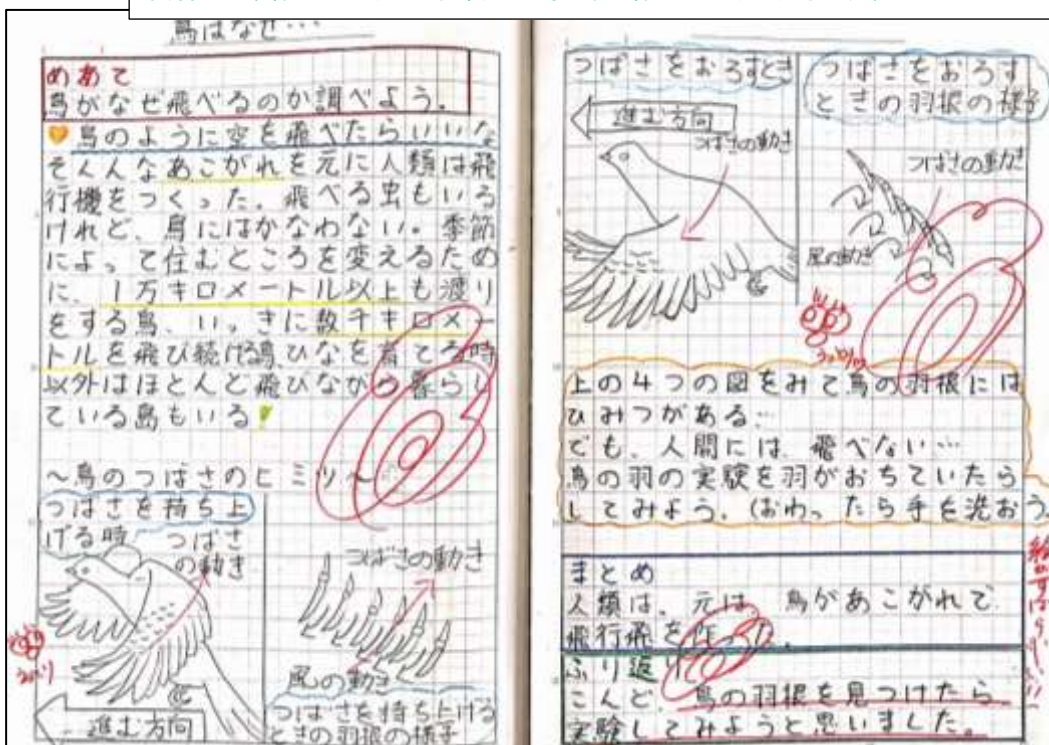 鳥はなぜ…
めあて
鳥がなぜ飛べるのか調べよう。
鳥のように空を飛べたらいいな
そんんなあこがれを元に人類は飛
行機をつくった。飛べる虫もいる
けれど、鳥にはかなわない。季節
によって住むところを変えるため
に、1万キロメートル以上も渡り
をする鳥、いっきに数千キロメー
トルを飛び続ける鳥、ひなを育てる時
以外はほとんと飛びながら暮らし
ている鳥もいる
～鳥のつばさのヒミツ～
つばさを持ち上
げる時
つばさ
の動き
進む方向
つばさの動き
風の動き
つばさを持ち上げる
ときの羽根の様子
つばさをおろすとき
進む方向
つばさの動き
つばさをおろす
ときの羽根の様子
つばさの動き
風の動き
上の4つの図をみて鳥の羽根には
ひみつがある…
でも、人間には、飛べない…
鳥の羽の実験を羽がおちていたら
してみよう。(おわったら手を洗おう。
まとめ
人類は、元は、鳥があこがれで、
飛行飛を作った。
ふり返り
こんど、鳥の羽根を見つけたら
実験してみようと思いました。